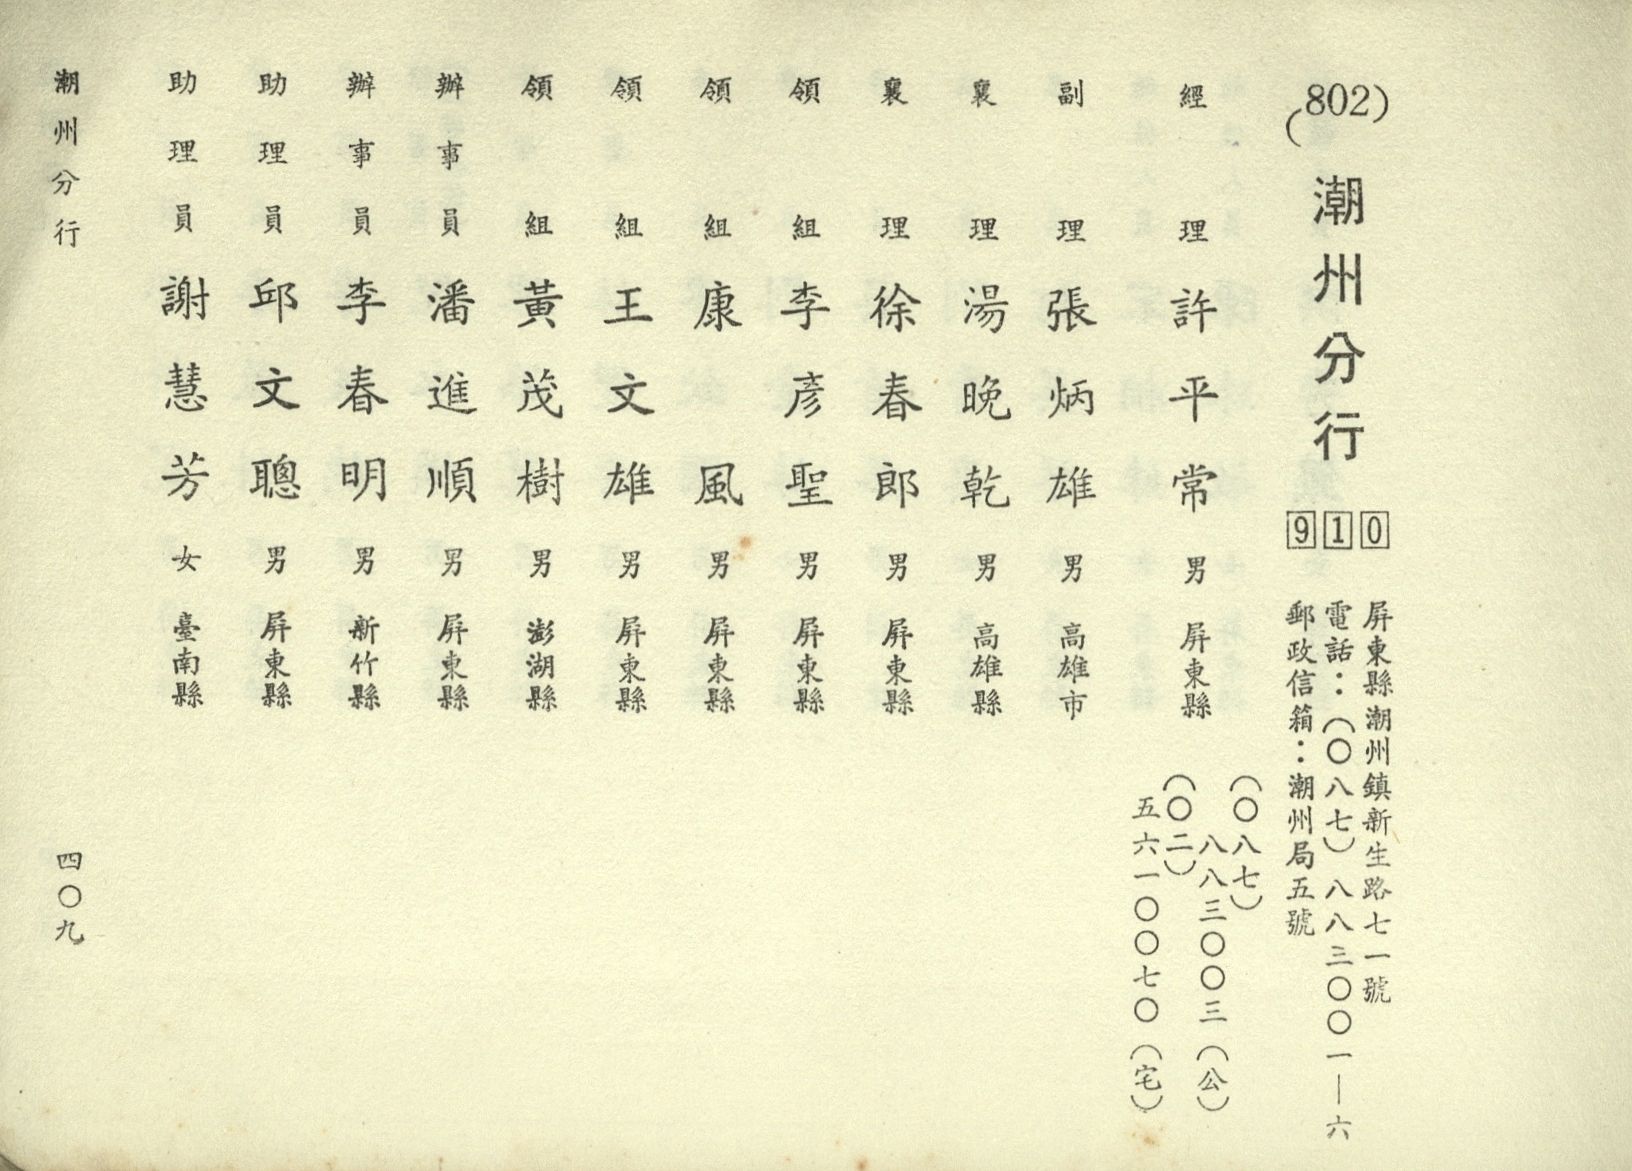 (802)
潮州分行
910
屏東縣潮州鎮新生路七一號
電話：(〇八七)八八三〇〇一—六
郵政信箱：潮州局五號
經理 許平常 男 屏東縣
(〇八七)
八八三〇〇三(公)
(〇二)
五六一〇〇七〇(宅)
副理 張炳雄 男 高雄市
襄理 湯晚乾 男 高雄縣
襄理 徐春郎 男 屏東縣
領組 李彥聖 男 屏東縣
領組 康風 男 屏東縣
領組 王文雄 男 屏東縣
領組 黃茂樹 男 澎湖縣
辦事員 潘進順 男 屏東縣
辦事員 李春明 男 新竹縣
助理員 邱文聰 男 屏東縣
助理員 謝慧芳 女 臺南縣
潮州分行
四〇九